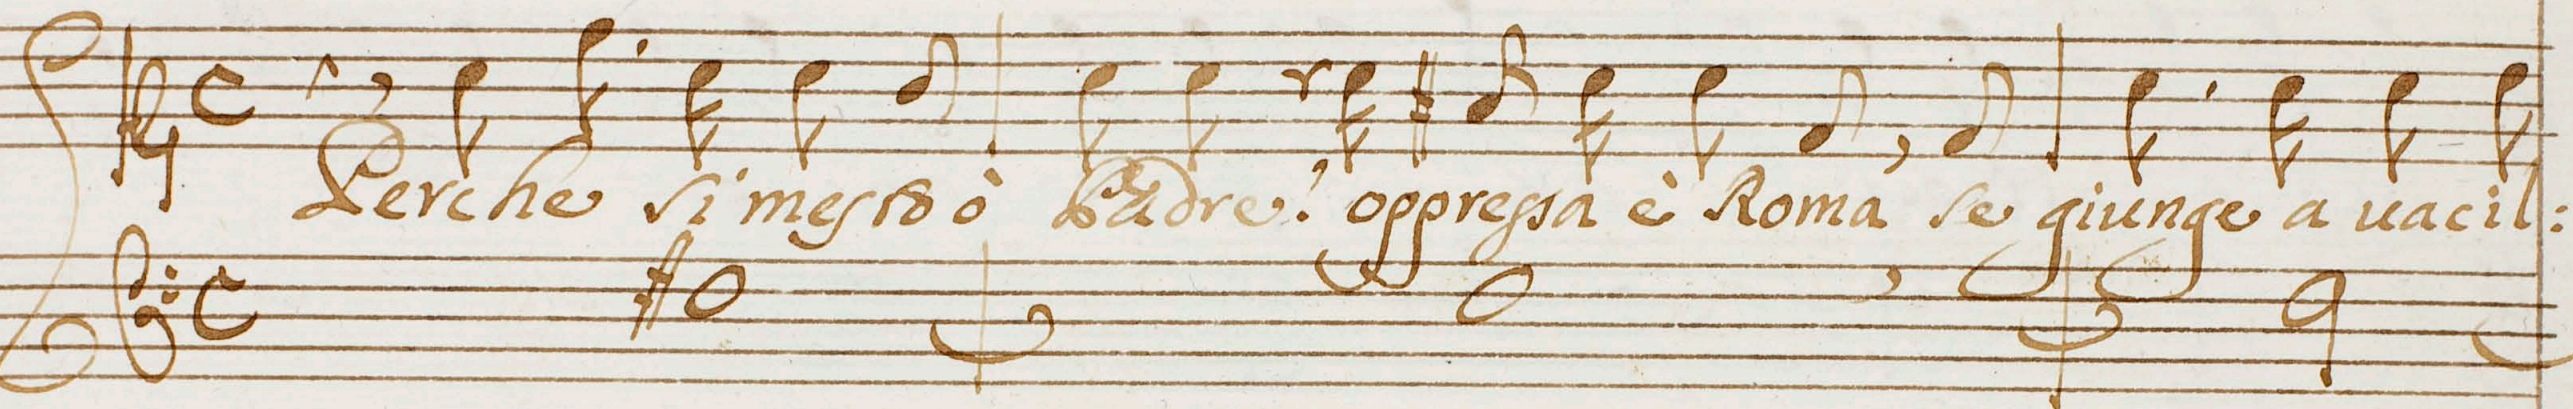 Perche si mesto ò Padre? oppressa è Roma se giunge a uacil: